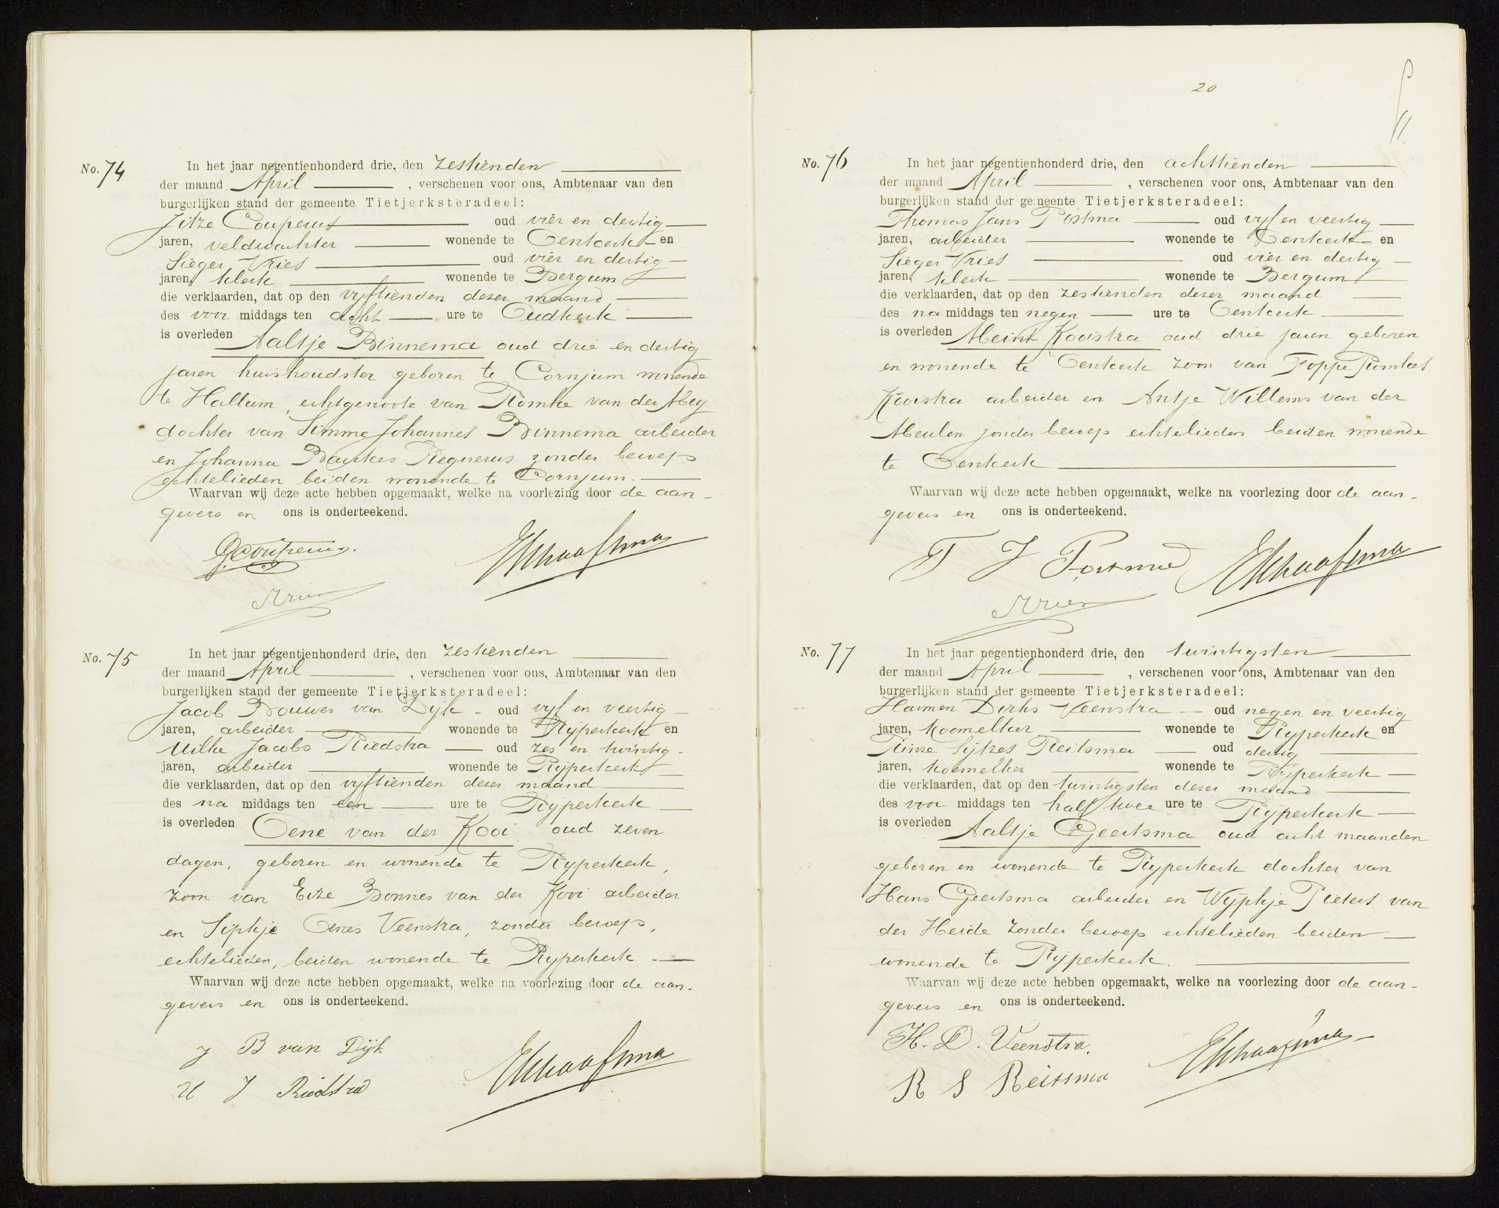 No. 74 In het jaar negentienhonderd drie, den zestienden
der maand April, verschenen voor ons, Ambtenaar van den
burgerlijken stand der gemeente Tietjerksteradeel:
Jitze Couperus oud vier en dertig
jaren, veldwachter wonende te Oenkerk en
Sieger Vries oud vier en dertig
jaren, klerk wonende te Bergum
die verklaarden, dat op den vijftienden dezer maand
des voor middags ten acht ure te Oudkerk
is overleden Aaltje Binnema oud drie en dertig
jaren huishoudster geboren te Cornjum wonende
te Hallum, echtgenoote van Riemke van der Meij
dochter van Simme Johannes Binnema arbeider
en Johanna Baukes Regnerus zonder beroep
echtelieden beiden wonende te Cornjum.
Waarvan wij deze acte hebben opgemaakt, welke na voorlezing door de aan-
gevers en ons is onderteekend.
JCouperus.
EKschaafsma
SVries
No. 75 In het jaar negentienhonderd drie, den zestienden
der maand April, verschenen voor ons, Ambtenaar van den
burgerlijken stand der gemeente Tietjerksteradeel:
Jacob Bouwes van Dijk - oud vijf en veertig
jaren, arbeider wonende te Rijperkerk en
Uilke Jacobs Riedstra oud zes en twintig
jaren, arbeider wonende te Rijperkerk
die verklaarden, dat op den vijftienden dezer maand
des na middags ten een ure te Rijperkerk
is overleden Oene van der Kooi oud zeven
dagen, geboren en wonende te Rijperkerk,
zoon van Eize Bonnes van der Kooi arbeider
en Sipkje Oenes Veenstra, zonder beroep,
echtelieden, beiden wonende te Rijperkerk
Waarvan wij deze acte hebben opgemaakt, welke na voorlezing door de aan-
gevers en ons is onderteekend.
J B van Dijk
EKschaafsma
U J Riedstra
20
No. 76 In het jaar negentienhonderd drie, den achttienden
der maand April, verschenen voor ons, Ambtenaar van den
burgerlijken stand der gemeente Tietjerksteradeel:
Thomas Jans Postma oud vijf en veertig
jaren, arbeider wonende te Oenkerk en
Sieger Vries oud vier en dertig
jaren, klerk wonende te Bergum
die verklaarden, dat op den zestienden dezer maand
des na middags ten negen ure te Oenkerk
is overleden Meint Kooistra oud drie jaren geboren
en wonende te Oenkerk zoon van Foppe Romkes
Kooistra arbeider en Antje Willems van der
Meulen zonder beroep echtelieden beiden wonende
te Oenkerk
Waarvan wij deze acte hebben opgemaakt, welke na voorlezing door de aan-
gevers en ons is onderteekend.
T J Postma
EKschaafsma
SVries
No. 77 In het jaar negentienhonderd drie, den twintigsten
der maand April, verschenen voor ons, Ambtenaar van den
burgerlijken stand der gemeente Tietjerksteradeel:
Harmen Dirks Veenstra oud negen en veertig
jaren, koemelker wonende te Rijperkerk en
Rinze Sijtzes Reitsma oud dertig
jaren, koemelker wonende te Rijperkerk
die verklaarden, dat op den twintigsten dezer maand
des voor middags ten half twee ure te Rijperkerk
is overleden Aaltje Geertsma oud acht maanden
geboren en wonende te Rijperkerk dochter van
Hans Geertsma arbeider en Wijpkje Pieters van
der Heide zonder beroep echtelieden beiden
wonende te Rijperkerk.
Waarvan wij deze acte hebben opgemaakt, welke na voorlezing door de aan-
gevers en ons is onderteekend.
H. D. Veenstra.
EKschaafsma
R S Reitsma